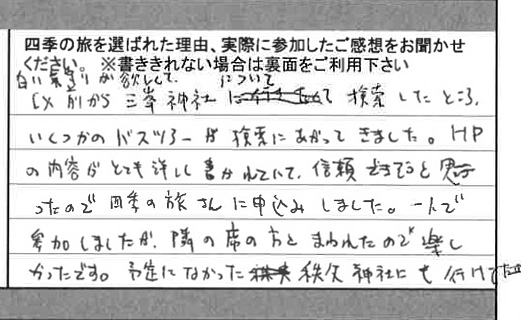 四季の旅を選ばれた理由、実際に参加したご感想をお聞かせ
ください。 ※書ききれない場合は裏面をご利用下さい
白い気守りが欲しくて、 について
以前から三峯神社に 検索したところ、
いくつかのバスツアーが検索にあがってきました。HP
の内容がとても詳しく書かれていて、信頼できると思
ったので四季の旅さんに申込みしました。一人で
参加しましたが、隣の席の方とまわれたので楽し
かったです。予定になかった 秩父神社にも行けて